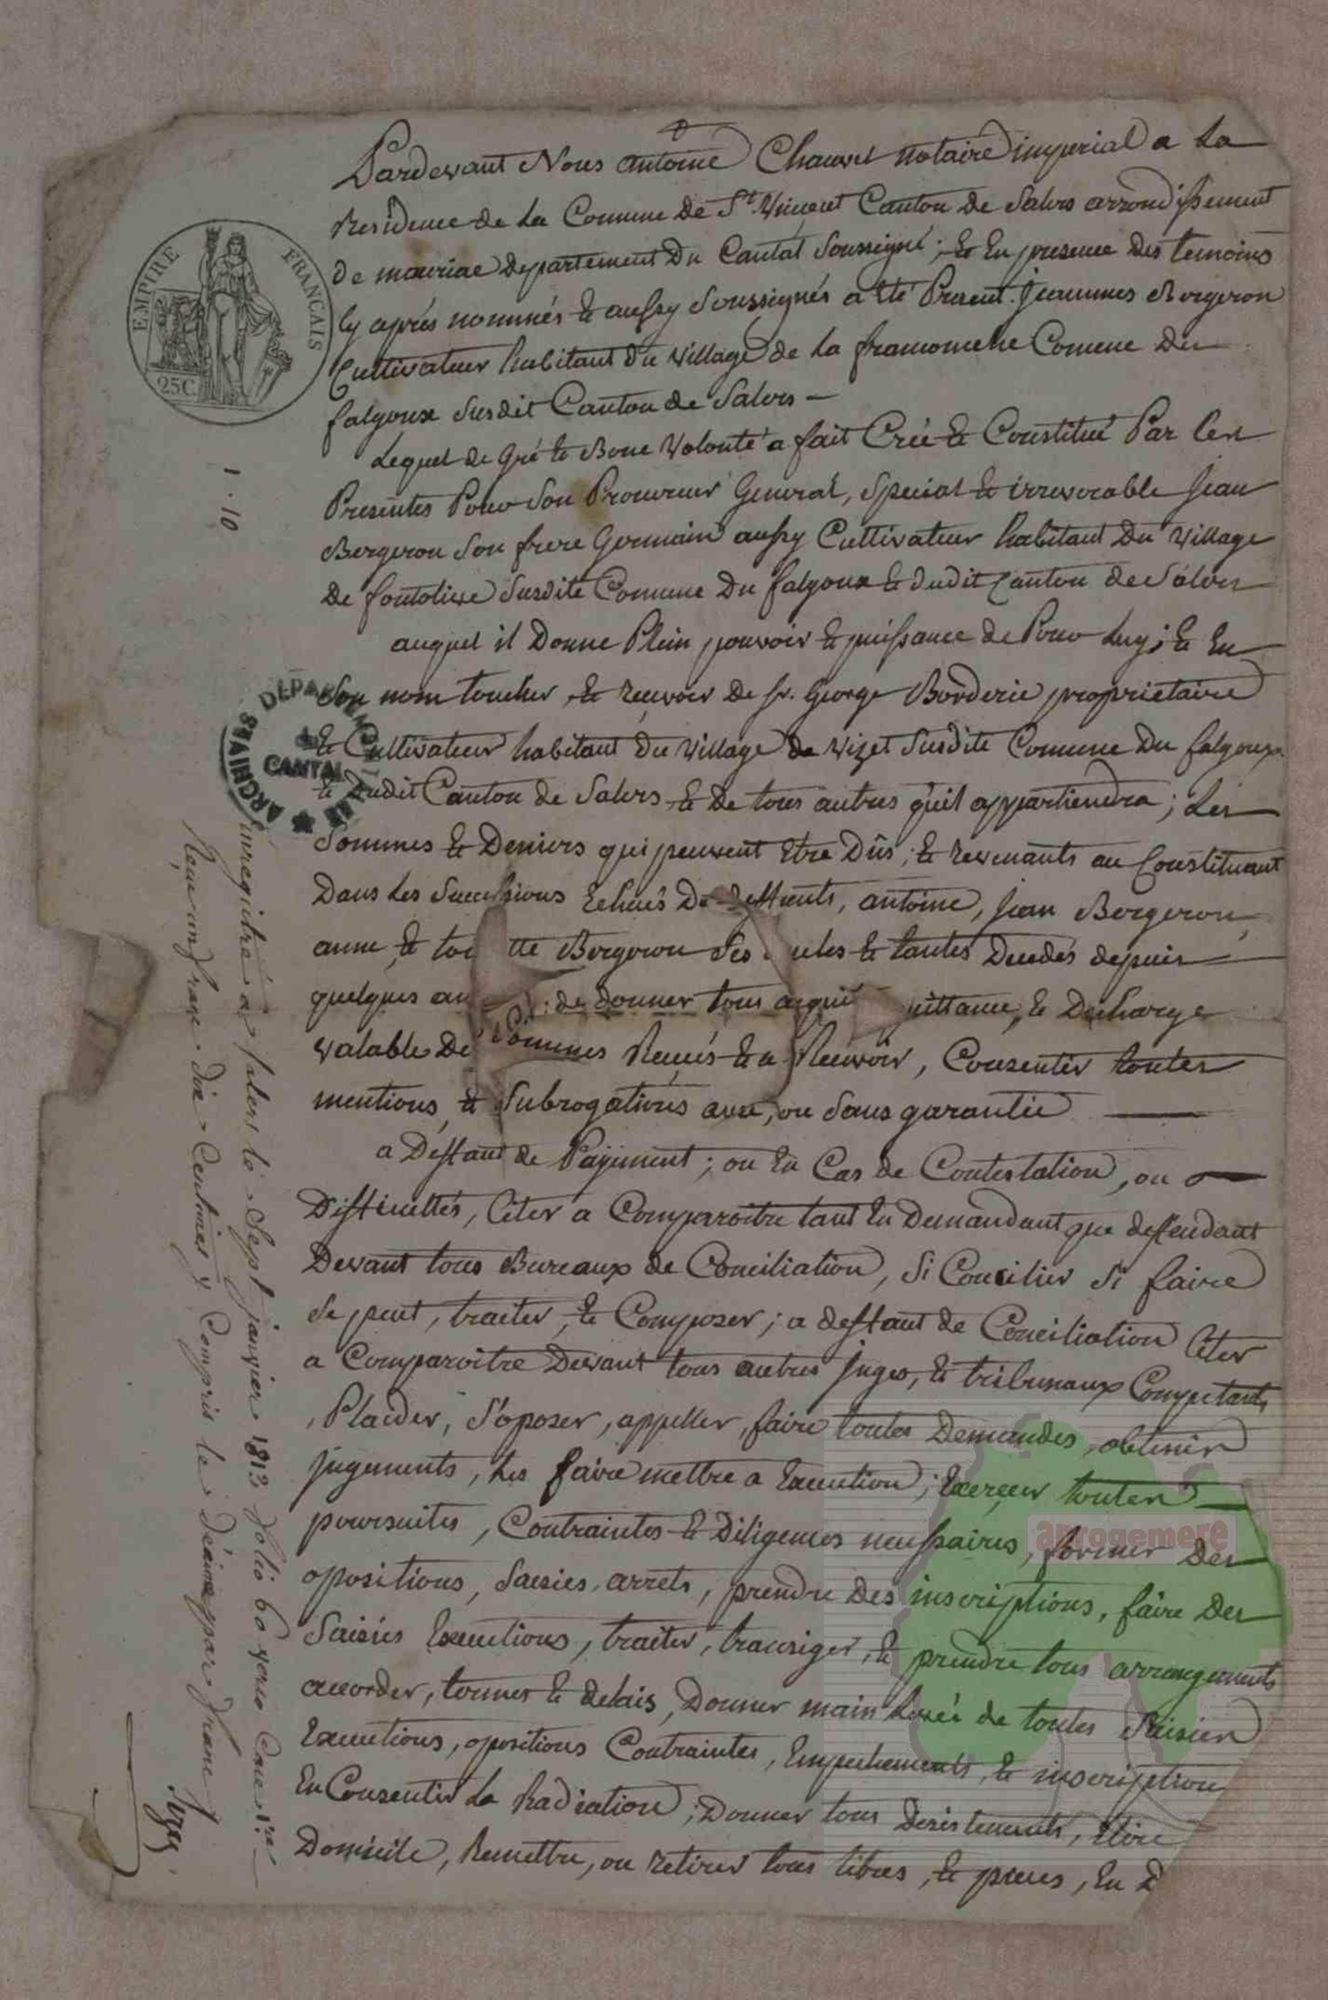 Pardevant Nous antoine Chauvet notaire imperial a La
Residence de La Comune De St. Vincent Canton De Salers arrondissement
de mauriac departement Du Cantal Soussigné ; Et En presence Des temoins
Cy aprés nommés & aussy Soussignés a été Present. Jeammes Bergeron
Cultivateur habitant du village de La franconeche Comune Du
falgoux Susdit Canton de Salers —
Lequel de gré & Bone Volonté a fait Créé & Constitué Par Les
Presentes Pour Son Procureur General, Special & irrevocable Jean
Bergeron Son frere Germain aussy Cultivateur habitant Du Village
De fontolive Susdite Comune Du falgoux & dudit Canton de Salers
auquel il Donne Plein pouvoir & puissance de Pour Luy ; & En
Son nom toucher, & recevoir De Sr. George Borderie proprietaire
& Cultivateur habitant Du village de Vizet Susdite Comune Du falgoux
& dudit Canton de Salers & De tous autres qu'il appartiendra ; Les
Sommes & Deniers qui peuvent Etre Dûs ; & revenants au Constituant
Dans Les Successions Echués De deffunts, antoine, Jean Bergeron,
anne, & toi tte Bergeron Ses cles & tantes Decedés depuis
quelques an de donner tous acquit uittance, & Decharge
valable De Sommes Reçués & a Recevoir, Consentir toutes
mentions, & Subrogations avec, ou Sans garantie
a Deffaut de Payement ; ou En Cas de Contestation, ou
Difficultés, Citer a Comparoitre tant En Demandant que deffendant
Devant tous Bureaux de Conciliation, Si Concilier Si faire
Se peut, traiter, & Composer ; a deffaut de Conciliation Citer
a Comparoitre Devant tous autres juges, & tribunaux Competants
, Plaider, S'oposer, appeller, faire toutes Demandes, obtenir
jugements, Les faire mettre a Execution ; Exercer toutes
poursuites, Contraintes & Diligences necessaires, former Des
opositions, Saisies arrets, prendre Des inscriptions, faire Des
Saisies Executions, traiter, transiger, & prendre tous arrangements
accorder, termes & delais, Donner main Levée de toutes Saisies
Executions, opositions Contraintes, Empechements, & inscriptions
En Consentir La Radiation ; Donner tous Desistements, Elire
Domicile, Remettre, ou retirer tous titres, & pieces, En D
EMPIRE FRANÇAIS
25C.
1 . 10
ARCHIVES DEPARTEMENTALES
du
CANTAL
Enregistré à Salers le Sept janvier 1813 folio 60 verso Case 1re
Reçu un franc dix Centimes y Compris le decime par franc
aprogemere